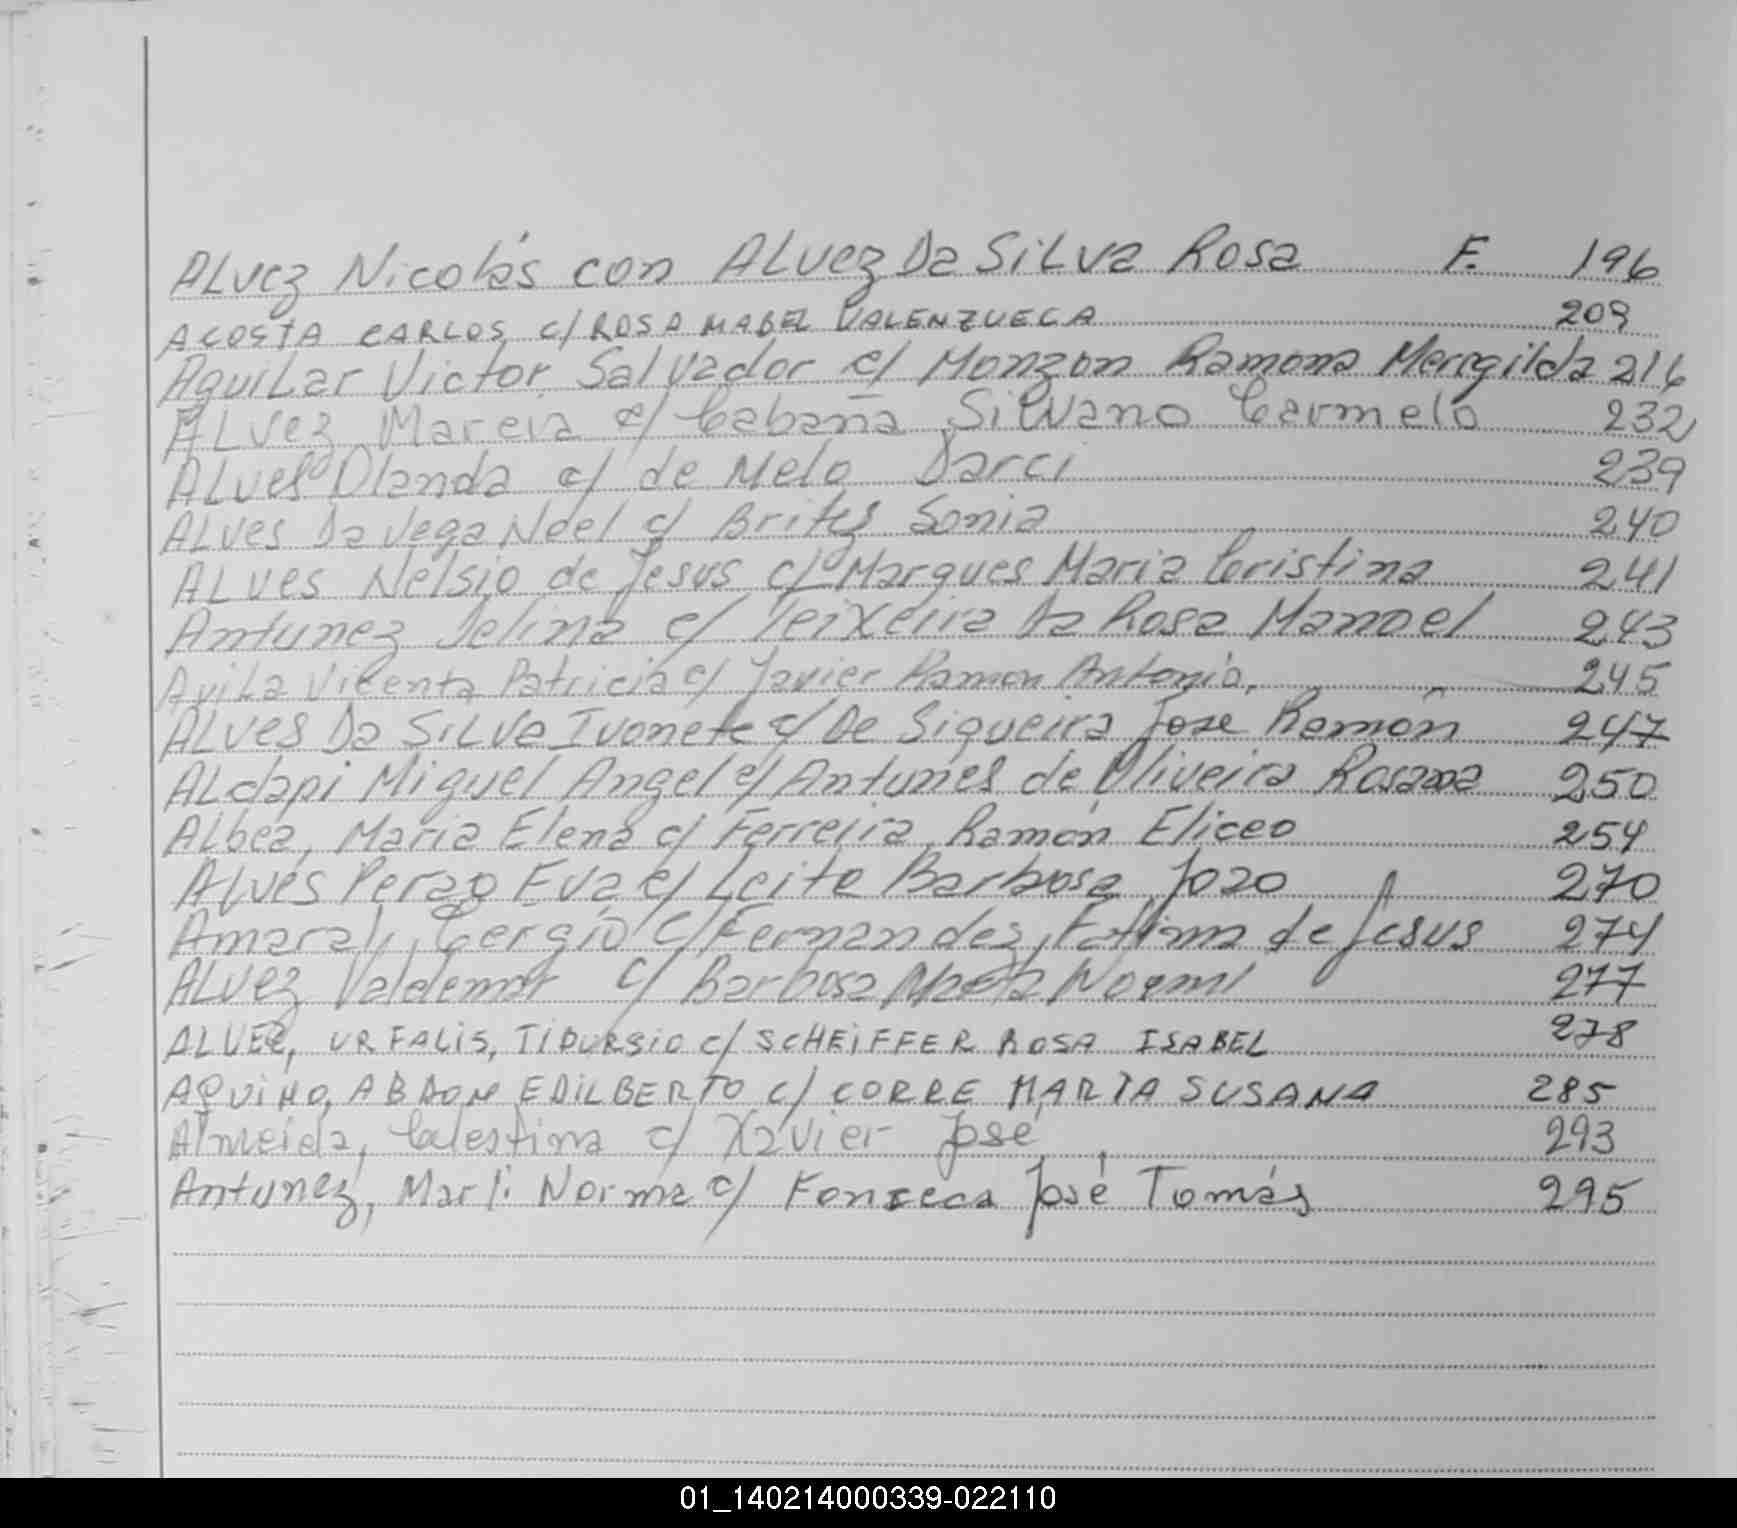 ALvez Nicolás con ALvez Da SiLva Rosa F. 196
ACOSTA CARLOS, C/ ROSA MABEL VALENZUELA 209
AguiLar Victor Salvador c/ Monzon Ramona Meregilda 216
ALvez Marcia c/ Cabaña Silvano Carmelo 232
ALves Olanda c/ de Melo Darci 239
ALves Da Vega Noel c/ Britez Sonia 240
ALves Nelsio de Jesus c/ Marques Maria Cristina 241
Antunez Delina c/ Teixeira Da Rosa Manoel 243
AviLa Vicenta Patricia c/ Javier Ramon Antonio. 245
ALves Da SiLva Ivonete c/ De Siqueira Jose Ramón 247
ALdapi Miguel Angel c/ Antunes de Oliveira Rosana 250
Albea, Maria Elena c/ Ferreira, Ramón Eliceo 254
Alves Perao Eva c/ Leite Barbosa Joao 270
Amaral, Cergio c/ Fernandez, Fatima de Jesus 274
ALvez Valdemar c/ Barbosa Noemi 277
ALVEZ, URFALIS, TIBURSIO c/ SCHEIFFER ROSA ISABEL 278
AQUINO, ABDON EDILBERTO C/ CORRE MARTA SUSANA 285
Almeida, Calestina c/ Xavier José 293
Antunez, Marli Norma c/ Fonseca José Tomás 295
01_140214000339-022110